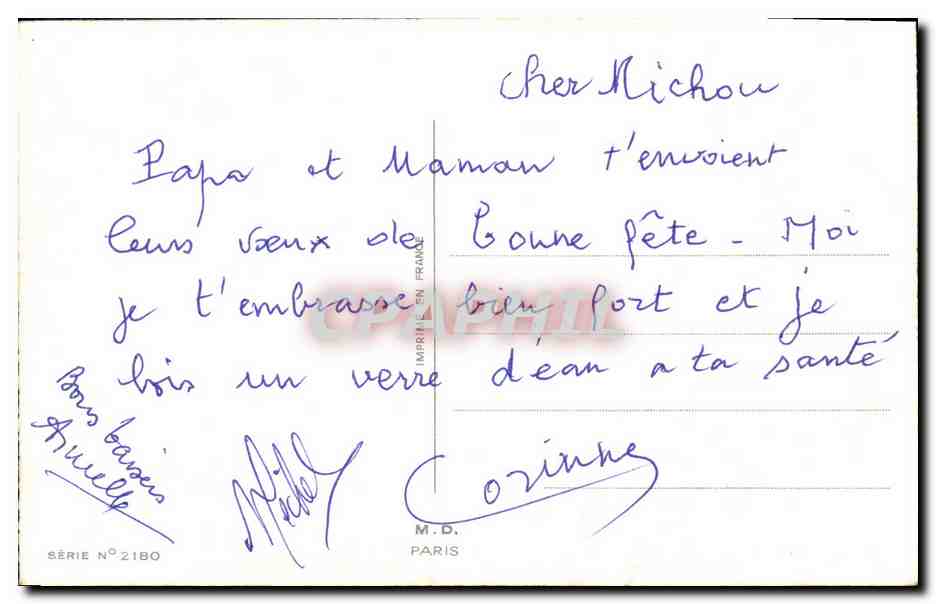 Cher Michou
Papa et Maman t'envoient
leurs vœux de bonne fête - Moi
je t'embrasse bien fort et je
bois un verre d'éau a ta santé
Bons baisers
Michel
Corinne
IMPRIMÉ EN FRANCE
CPAPHIL
M. D.
PARIS
SÉRIE N° 21BO